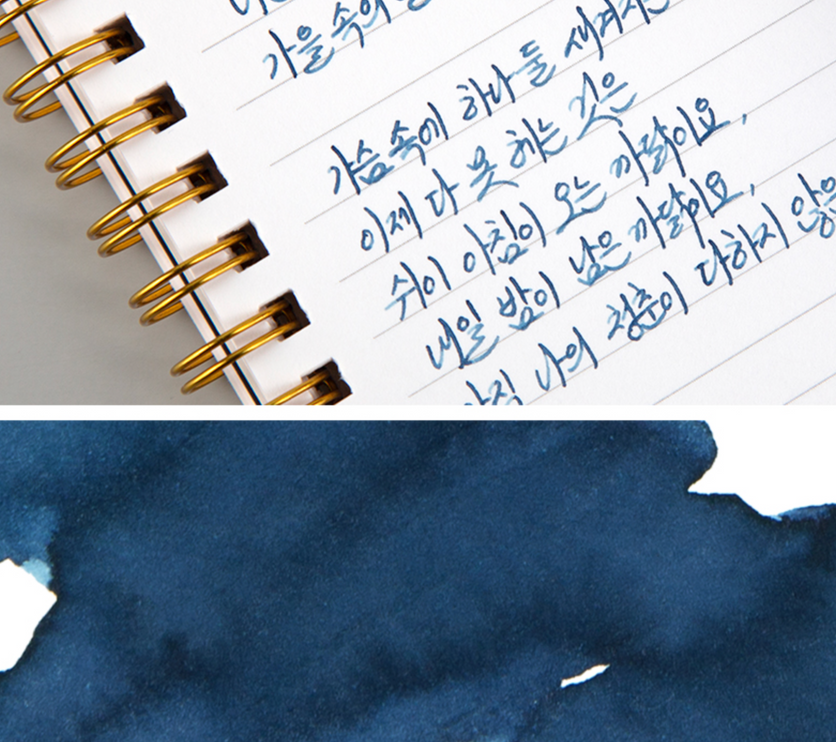 가을 속의
가슴속에 하나 둘 새겨지는
이제 다 못 헤는 것은
쉬이 아침이 오는 까닭이요,
내일 밤이 남은 까닭이요,
아직 나의 청춘이 다하지 않은